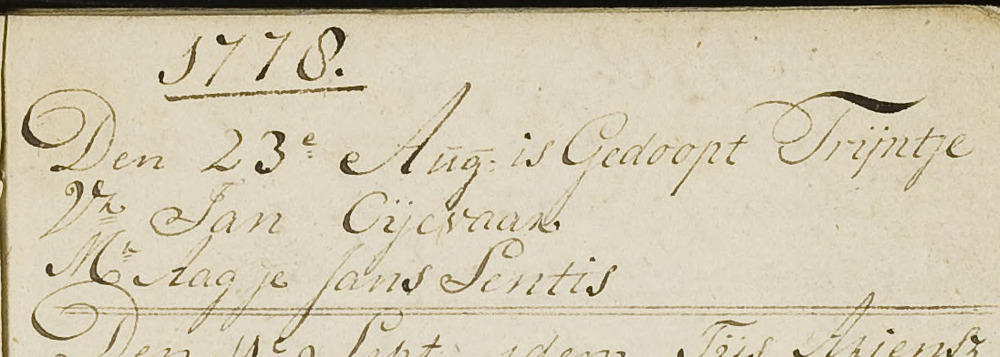 1778.
Den 23e Aug: is Gedoopt Trijntje
Vr Jan Oijevaar
Mr Aagje Jans Lentis
Den Sept idem Tijs Ariensz